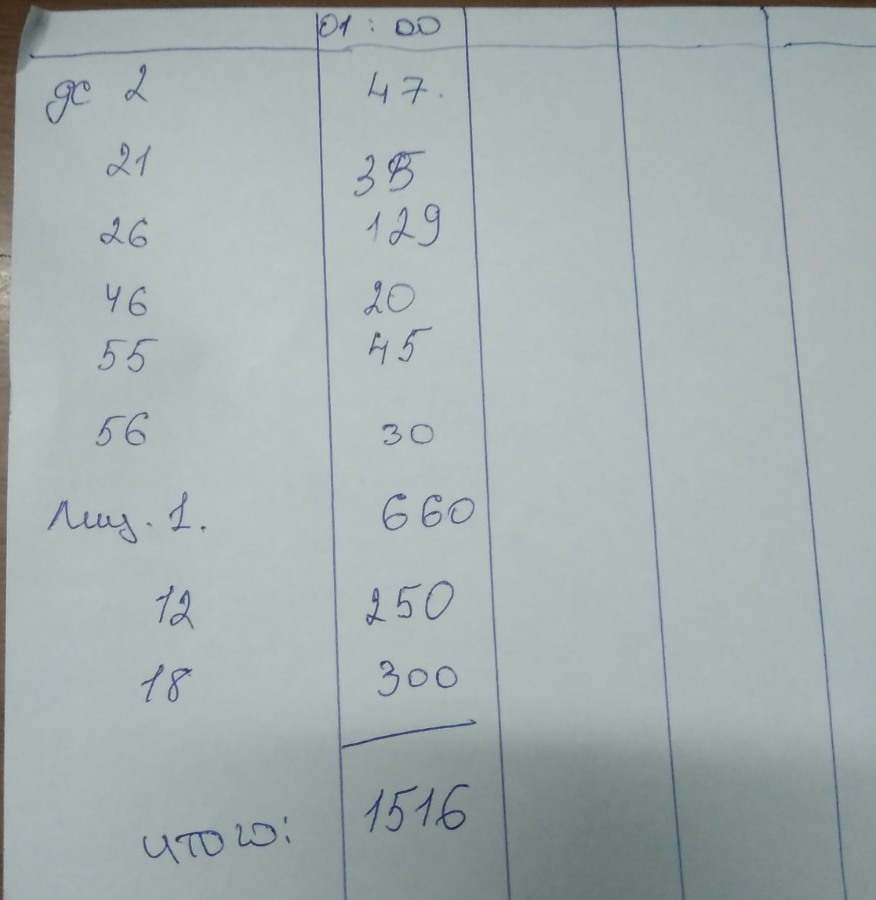 01 : 00
дс 2 47.
21 35
26 129
46 20
55 45
56 30
Лиц. 1. 660
12 250
18 300
итого: 1516